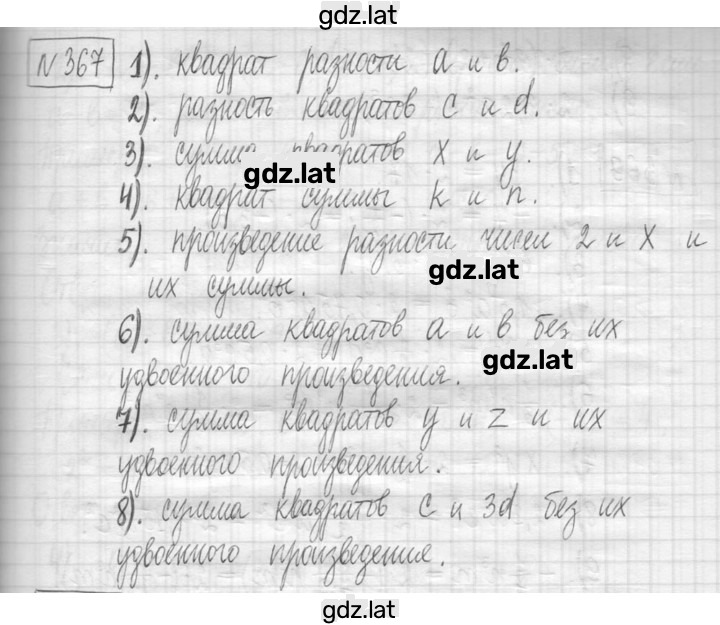 gdz.lat
№ 367 1). квадрат разности a и b.
2). разность квадратов c и d.
3). сумма квадратов x и y.
gdz.lat
4). квадрат суммы k и n.
5). произведение разности чисел 2 и x и
gdz.lat
их суммы.
6). сумма квадратов a и b без их
gdz.lat
удвоенного произведения.
7). сумма квадратов y и z и их
удвоенного произведения.
8). сумма квадратов c и 3d без их
удвоенного произведение.
gdz.lat